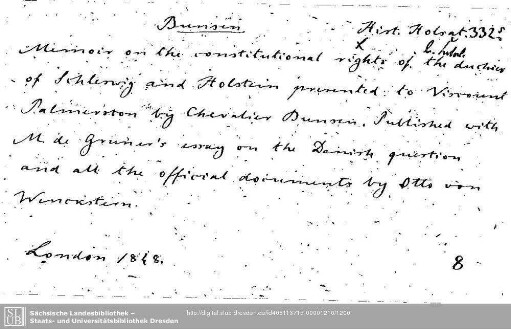 Bunsen
Hist. Holsat. 332
Memoir on the constitutional rights of the duchies
of Schleswig and Holstein presented to Viscount
Palmerston by Chevalier Bunsen. Published with
M. de Gruner's essay on the Danish question
and all the official documents by Otto von
Wenckstern.
London 1848.
8
Sächsische Landesbibliothek –
Staats- und Universitätsbibliothek Dresden